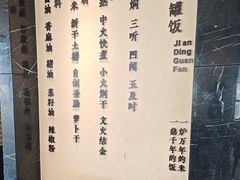 罐饭
Jian
Ding
Guan
Fan
一炉万年的米
千年的饭
焖 三听 四闻 五及时
中火快煮 小火焖干 文火结金
料 米 新干土猪 自制香肠 萝卜干
油 香麻油 猪油 菜籽油 辣椒粉